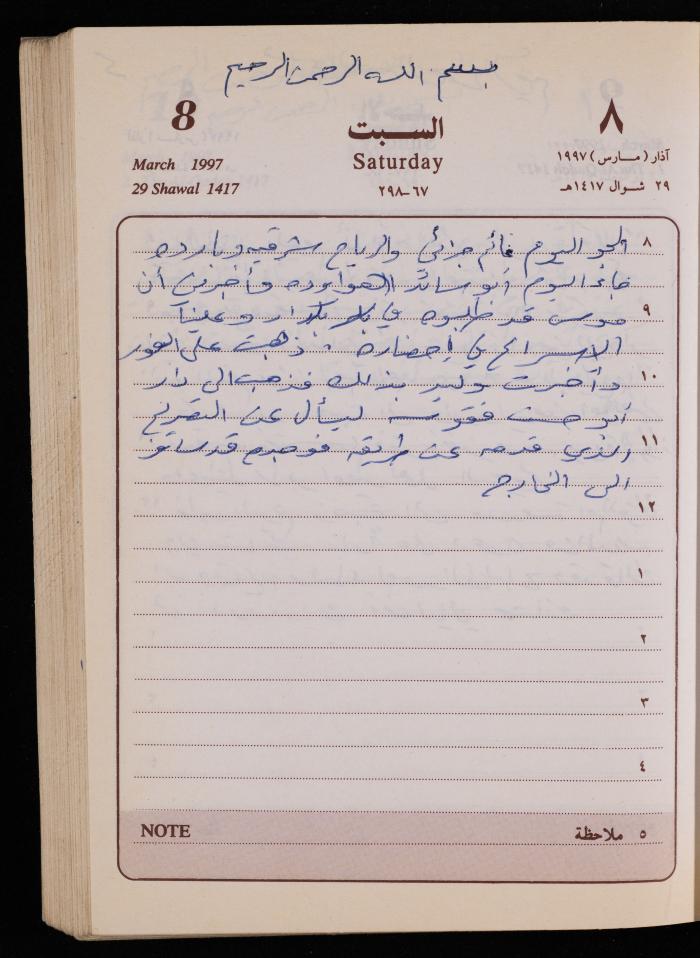 بسم الله الرحمن الرحيم
8
السبت
٨
March 1997
Saturday
آذار (مارس) ١٩٩٧
29 Shawal 1417
٦٧-٢٩٨
٢٩ شوال ١٤١٧هـ
٨ الجو اليوم غائم جزئي والرياح شرقيه وبارده
جاء اليوم أبو سائد الهوابده وأخبرني أن
٩ موسى قد طلبوه في وعلينا
الإسراع في إحضاره . ذهبت على الفور
١٠ وأخبرت وليد بذلك فذهب الى دار
أبو حسن فقوسه ليسأل عن التصريح
١١ الذي قدمه عن طريقه فوجده قد سافر
الى الخارج
١٢
١
٢
٣
٤
NOTE
٥ ملاحظة